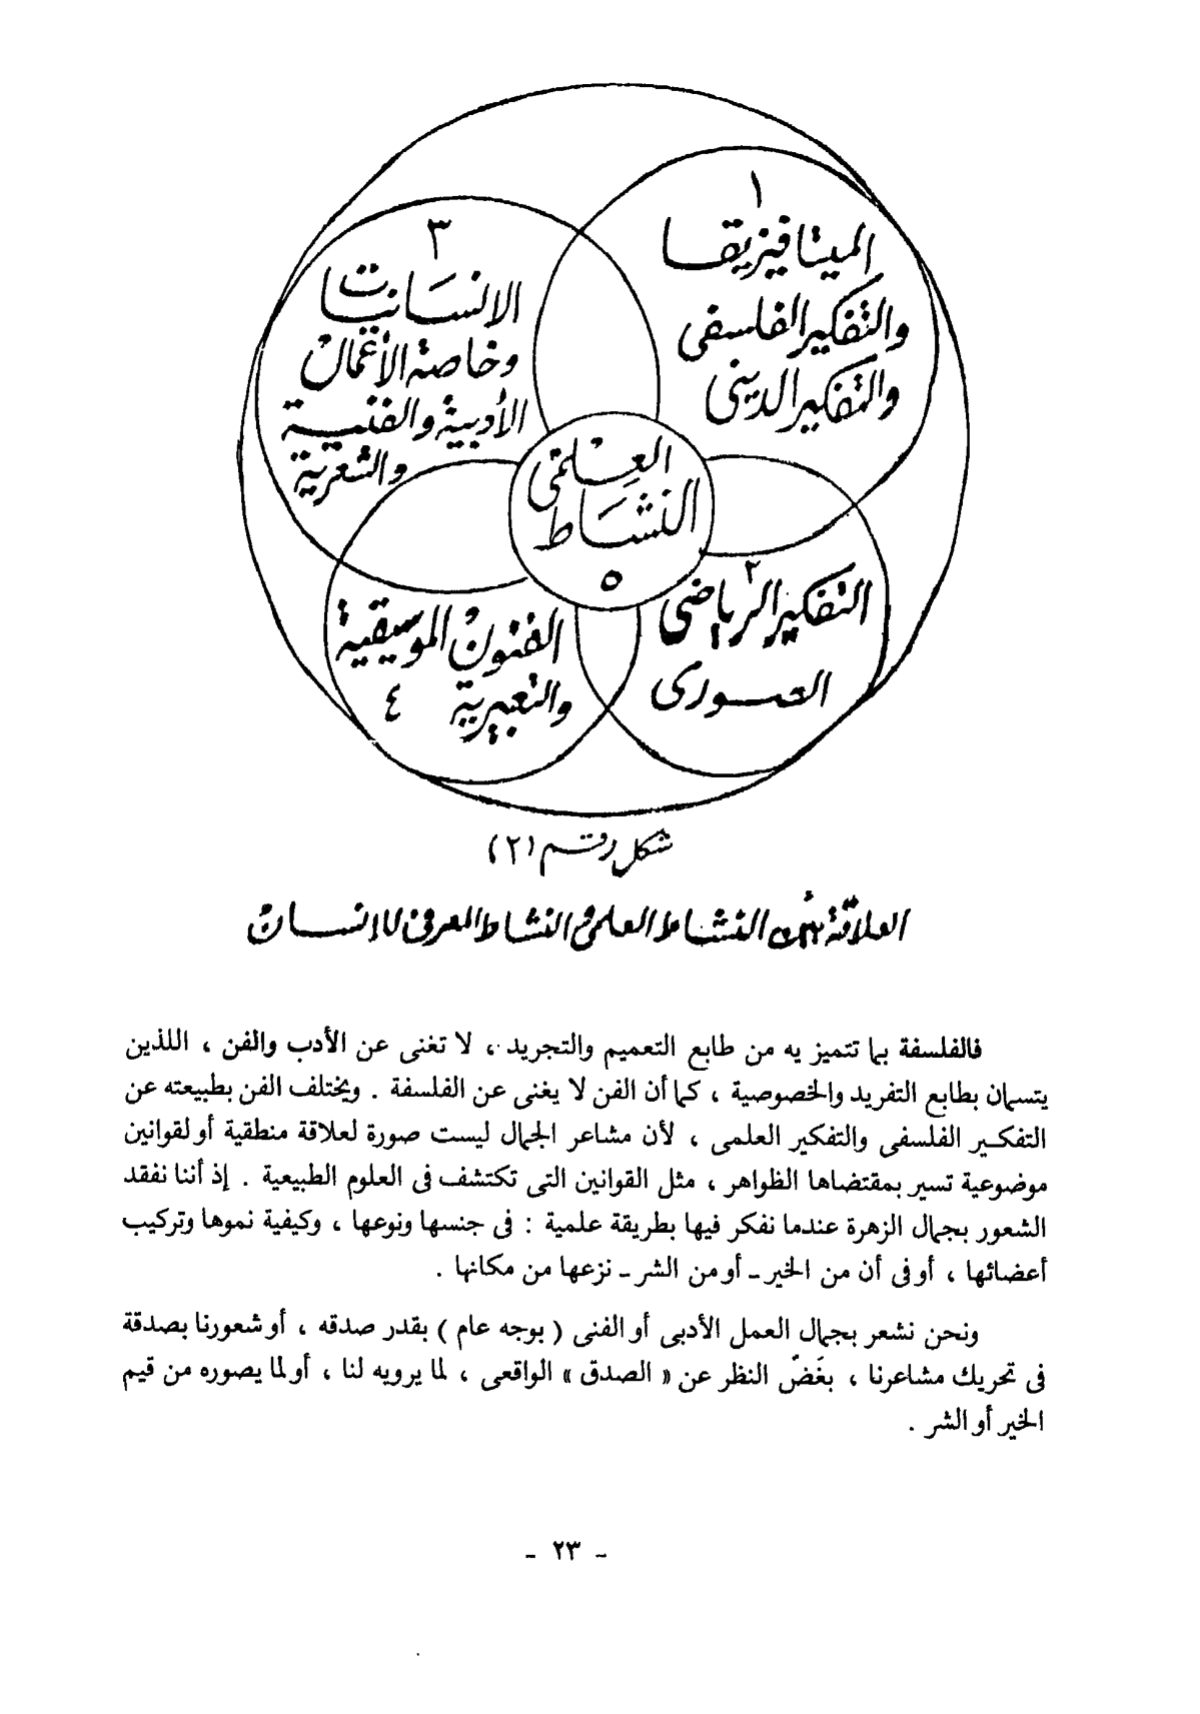 ١
الميتافيزيقا
والتفكير الفلسفى
والتفكير الدينى
٣
الإنسانيات
وخاصة الأعمال
الأدبية والفنية
والشعرية
العلمى
النشاط
٥
٢
التفكير الرياضى
الصورى
الفنون الموسيقية
والتعبيرية ٤
شكل رقم (٢)
العلاقة بين النشاط العلمى والنشاط المعرفى للإنسان
فالفلسفة بما تتميز يه من طابع التعميم والتجريد ، لا تغنى عن الأدب والفن ، اللذين
يتسمان بطابع التفريد والخصوصية ، كما أن الفن لا يغنى عن الفلسفة . ويختلف الفن بطبيعته عن
التفكير الفلسفى والتفكير العلمى ، لأن مشاعر الجمال ليست صورة لعلاقة منطقية أو لقوانين
موضوعية تسير بمقتضاها الظواهر ، مثل القوانين التى تكتشف فى العلوم الطبيعية . إذ أننا نفقد
الشعور بجمال الزهرة عندما نفكر فيها بطريقة علمية : فى جنسها ونوعها ، وكيفية نموها وتركيب
أعضائها ، أو فى أن من الخير ـ أو من الشر ـ نزعها من مكانها .
ونحن نشعر بجمال العمل الأدبى أو الفنى ( بوجه عام ) بقدر صدقه ، أو شعورنا بصدقة
فى تحريك مشاعرنا ، بغَضّ النظر عن « الصدق » الواقعى ، لما يرويه لنا ، أو لما يصوره من قيم
الخير أو الشر .
- ٢٣ -